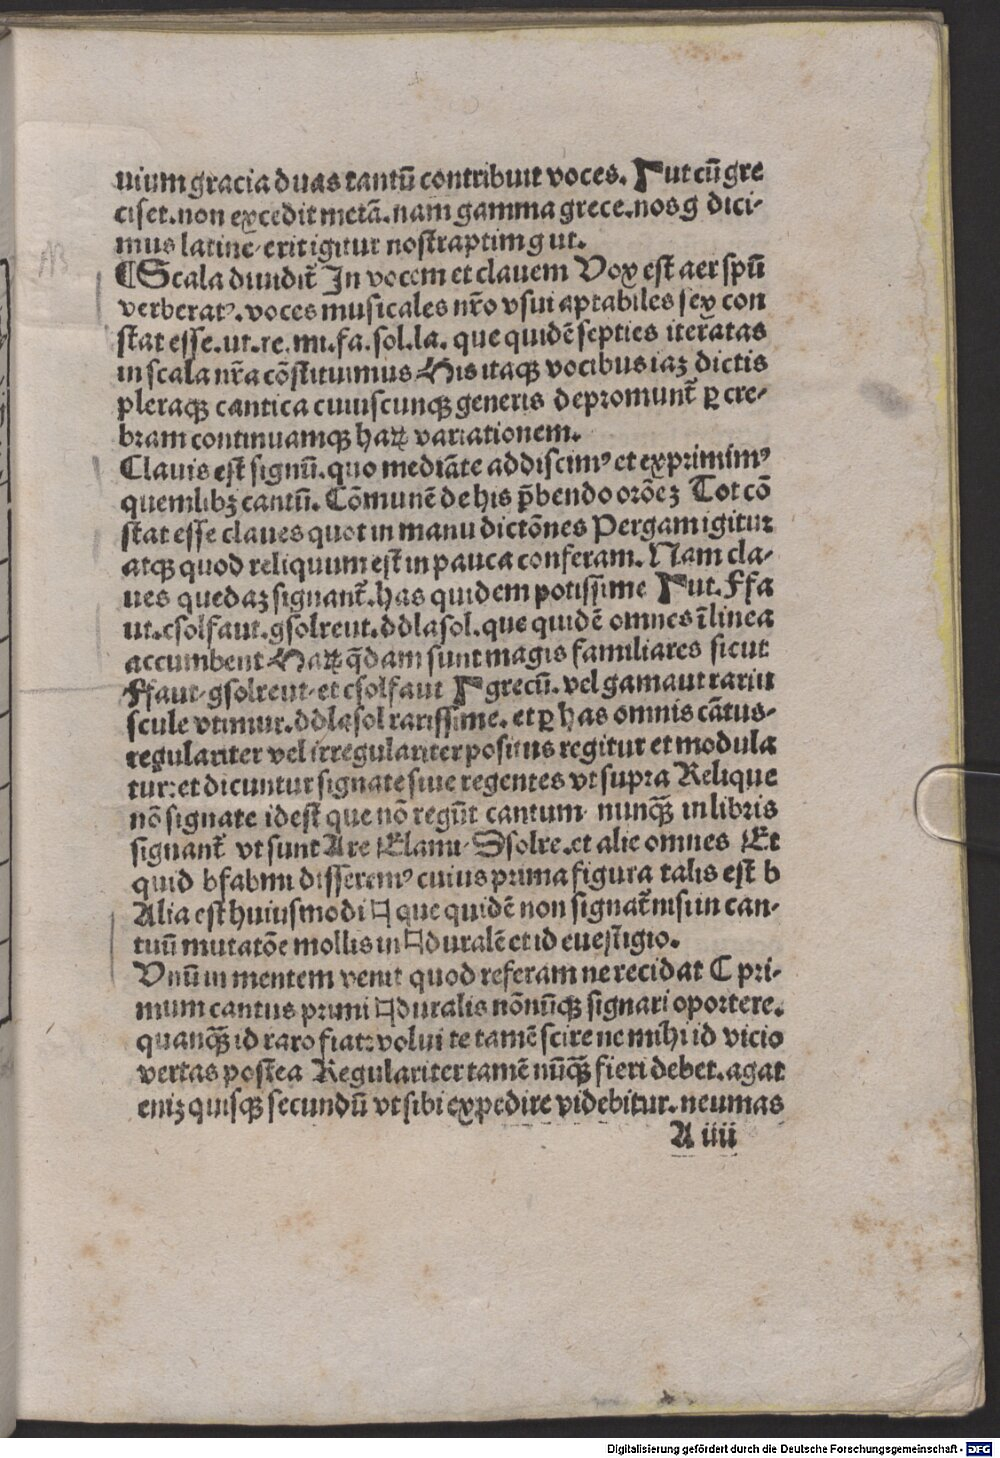 uium gracia duas tantū contribuit voces. Γut cū gre
ciset. non excedit metā. nam gamma grece. nos g dici-
mus latine. erit igitur nostra ptim g ut.
¶Scala diuidit̄ In vocem et clauem Vox est aer spū
verberatꝰ. voces musicales nr̄o vsui aptabiles sex con
stat esse. ut. re. mi. fa. sol. la. que quidē septies iter̄atas
in scala nr̄a cōstituimus His itaqꝫ vocibus iaꝫ dictis
pleraqꝫ cantica cuiuscunqꝫ generis depromunt̄ ꝑ cre-
bram continuamqꝫ haꝝ variationem.
Clauis est signū. quo mediāte addiscimꝰ et exprimimꝰ
quemlibꝫ cantū. Cōmunē de his p̄bendo orōeꝫ Tot cō
stat esse claues quot in manu dictōnes Pergam igitur
atqꝫ quod reliquum est in pauca conferam. Nam cla-
ues quedaꝫ signant̄. has quidem potissime Γut. Ffa
ut. csolfaut. gsolreut. ddlasol. que quidē omnes ī linea
accumbent Haꝝ q̄dam sunt magis familiares sicut
Ffaut. gsolreut. et csolfaut Γ grecū. vel gamaut rariu
scule vtimur. ddlasol rarissime. et ꝑ has omnis cātus-
regulariter vel irregulariter positus regitur et modula
tur: et dicuntur signate siue regentes vt supra Relique
nō signate idest que nō regūt cantum. nunqꝫ̄ in libris
signant̄ vt sunt Are Elami. Dsolre. et alie omnes Et
quid bfabmi disseremꝰ cuius prima figura talis est b
Alia est huiusmodi ♮ que quidē non signat̄ nisi in can-
tuū mutatōe mollis in ♮duralē et id euestigio.
Unū in mentem venit quod referam ne recidat C pri-
mum cantus primi ♮duralis nōnūqꝫ signari oportere.
quanqꝫ̄ id raro fiat: volui te tamē scire ne mihi id vicio
vertas postea Regulariter tamē nūqꝫ̄ fieri debet. agat
eniꝫ quisqꝫ secundū vt sibi expedire videbitur. neumas
A iiii
Digitalisierung gefördert durch die Deutsche Forschungsgemeinschaft - DFG